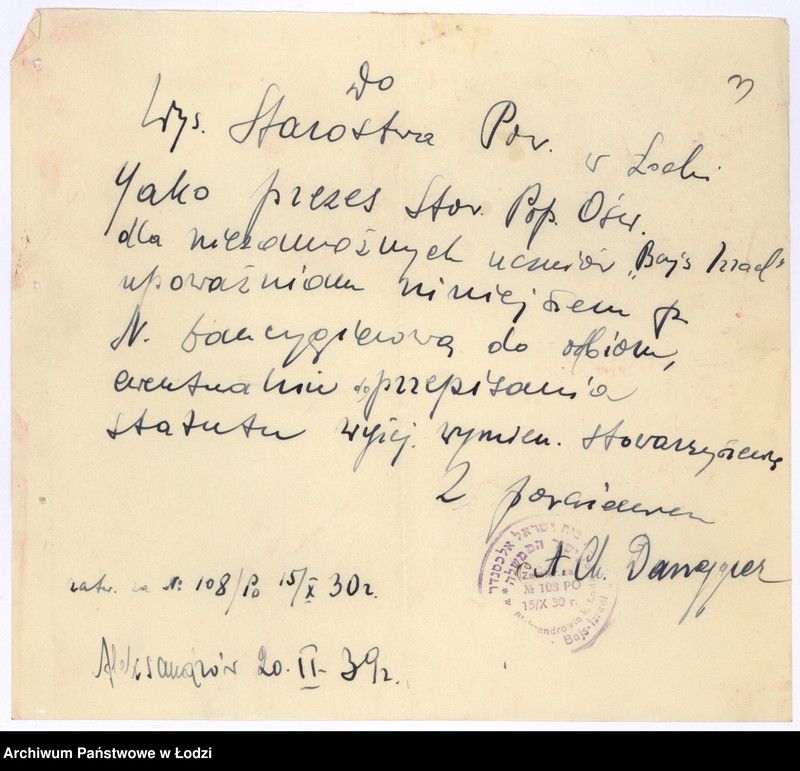 Do
3
Wys. Starostwa Pow.
w Łodzi
Jako prezes Stow. Pop. Ośw.
dla niezamożnych uczniów „Bajs Izrael"
upoważniam niniejszem p.
N. Dancygierową do odbioru,
ewentualnie do przepisania
statutu wyżej wymien. stowarzyszenia
Z poważaniem
A. Ch. Dancygier
בית ישראל אלכסנדר
№ 108 PO
15/X 30 r.
Bajs-Izrael
zatw. za № 108/Po 15/X 30 r.
Aleksandrów 20. II - 39 r.
Archiwum Państwowe w Łodzi